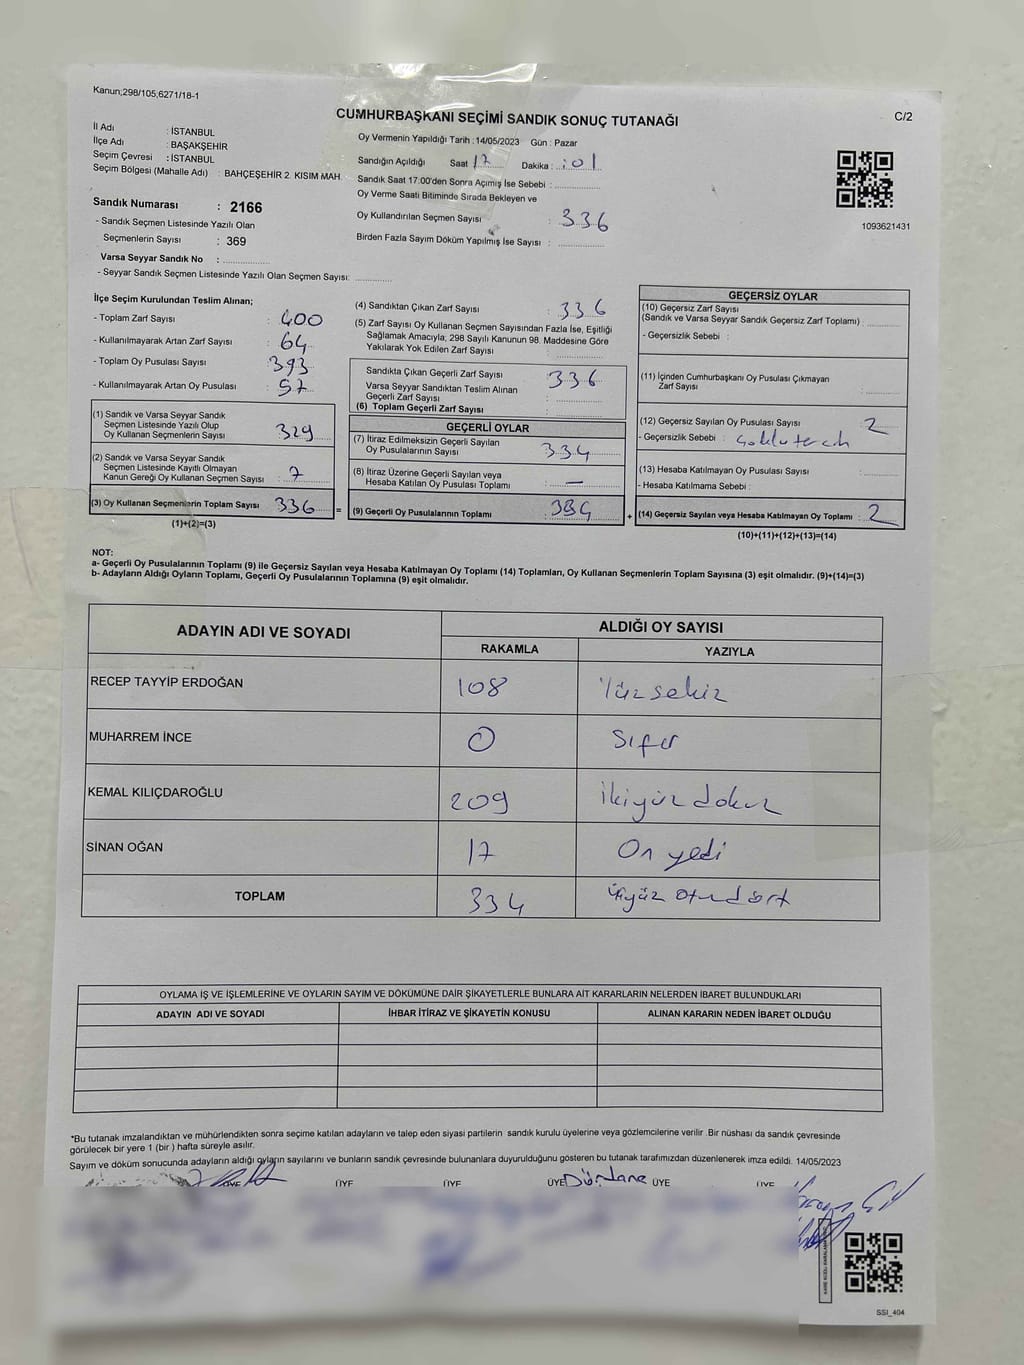 Kanun;298/105;6271/18-1
C/2
CUMHURBAŞKANI SEÇİMİ SANDIK SONUÇ TUTANAĞI
İl Adı : İSTANBUL
İlçe Adı : BAŞAKŞEHİR
Seçim Çevresi : İSTANBUL
Seçim Bölgesi (Mahalle Adı) : BAHÇEŞEHİR 2. KISIM MAH.
Sandık Numarası : 2166
- Sandık Seçmen Listesinde Yazılı Olan
Seçmenlerin Sayısı : 369
Varsa Seyyar Sandık No :
- Seyyar Sandık Seçmen Listesinde Yazılı Olan Seçmen Sayısı:
Oy Vermenin Yapıldığı Tarih : 14/05/2023 Gün : Pazar
Sandığın Açıldığı Saat 17 Dakika : 01
Sandık Saat 17:00'den Sonra Açımış İse Sebebi :
Oy Verme Saati Bitiminde Sırada Bekleyen ve
Oy Kullandırılan Seçmen Sayısı : 336
Birden Fazla Sayım Döküm Yapılmış İse Sayısı :
1093621431
İlçe Seçim Kurulundan Teslim Alınan;
- Toplam Zarf Sayısı : 400
- Kullanılmayarak Artan Zarf Sayısı : 64
- Toplam Oy Pusulası Sayısı : 393
- Kullanılmayarak Artan Oy Pusulası : 57
(1) Sandık ve Varsa Seyyar Sandık
Seçmen Listesinde Yazılı Olup
Oy Kullanan Seçmenlerin Sayısı : 329
(2) Sandık ve Varsa Seyyar Sandık
Seçmen Listesinde Kayıtlı Olmayan
Kanun Gereği Oy Kullanan Seçmen Sayısı : 7
(3) Oy Kullanan Seçmenlerin Toplam Sayısı : 336
(1)+(2)=(3)
=
(4) Sandıktan Çıkan Zarf Sayısı : 336
(5) Zarf Sayısı Oy Kullanan Seçmen Sayısından Fazla İse, Eşitliği
Sağlamak Amacıyla; 298 Sayılı Kanunun 98. Maddesine Göre
Yakılarak Yok Edilen Zarf Sayısı :
Sandıkta Çıkan Geçerli Zarf Sayısı : 336
Varsa Seyyar Sandıktan Teslim Alınan
Geçerli Zarf Sayısı :
(6) Toplam Geçerli Zarf Sayısı :
GEÇERLİ OYLAR
(7) İtiraz Edilmeksizin Geçerli Sayılan
Oy Pusulalarının Sayısı : 334
(8) İtiraz Üzerine Geçerli Sayılan veya
Hesaba Katılan Oy Pusulası Toplamı : —
(9) Geçerli Oy Pusulalarının Toplamı : 334
+
GEÇERSİZ OYLAR
(10) Geçersiz Zarf Sayısı
(Sandık ve Varsa Seyyar Sandık Geçersiz Zarf Toplamı) :
- Geçersizlik Sebebi :
(11) İçinden Cumhurbaşkanı Oy Pusulası Çıkmayan
Zarf Sayısı :
(12) Geçersiz Sayılan Oy Pusulası Sayısı : 2
- Geçersizlik Sebebi :
(13) Hesaba Katılmayan Oy Pusulası Sayısı :
- Hesaba Katılmama Sebebi :
(14) Geçersiz Sayılan veya Hesaba Katılmayan Oy Toplamı : 2
(10)+(11)+(12)+(13)=(14)
NOT:
a- Geçerli Oy Pusulalarının Toplamı (9) ile Geçersiz Sayılan veya Hesaba Katılmayan Oy Toplamı (14) Toplamları, Oy Kullanan Seçmenlerin Toplam Sayısına (3) eşit olmalıdır. (9)+(14)=(3)
b- Adayların Aldığı Oyların Toplamı, Geçerli Oy Pusulalarının Toplamına (9) eşit olmalıdır.
ADAYIN ADI VE SOYADI ALDIĞI OY SAYISI
RAKAMLA YAZIYLA
RECEP TAYYİP ERDOĞAN 108 Yüz sekiz
MUHARREM İNCE 0 Sıfır
KEMAL KILIÇDAROĞLU 209 İkiyüz dokuz
SİNAN OĞAN 17 On yedi
TOPLAM 334 Üçyüz otuzdört
OYLAMA İŞ VE İŞLEMLERİNE VE OYLARIN SAYIM VE DÖKÜMÜNE DAİR ŞİKAYETLERLE BUNLARA AİT KARARLARIN NELERDEN İBARET BULUNDUKLARI
ADAYIN ADI VE SOYADI İHBAR İTİRAZ VE ŞİKAYETİN KONUSU ALINAN KARARIN NEDEN İBARET OLDUĞU
*Bu tutanak imzalandıktan ve mühürlendikten sonra seçime katılan adayların ve talep eden siyasi partilerin sandık kurulu üyelerine veya gözlemcilerine verilir .Bir nüshası da sandık çevresinde
görülecek bir yere 1 (bir ) hafta süreyle asılır.
Sayım ve döküm sonucunda adayların aldığı oyların sayılarını ve bunların sandık çevresinde bulunanlara duyurulduğunu gösteren bu tutanak tarafımızdan düzenlenerek imza edildi. 14/05/2023
ÜYE ÜYE ÜYE ÜYE ÜYE ÜYE
SSI_404